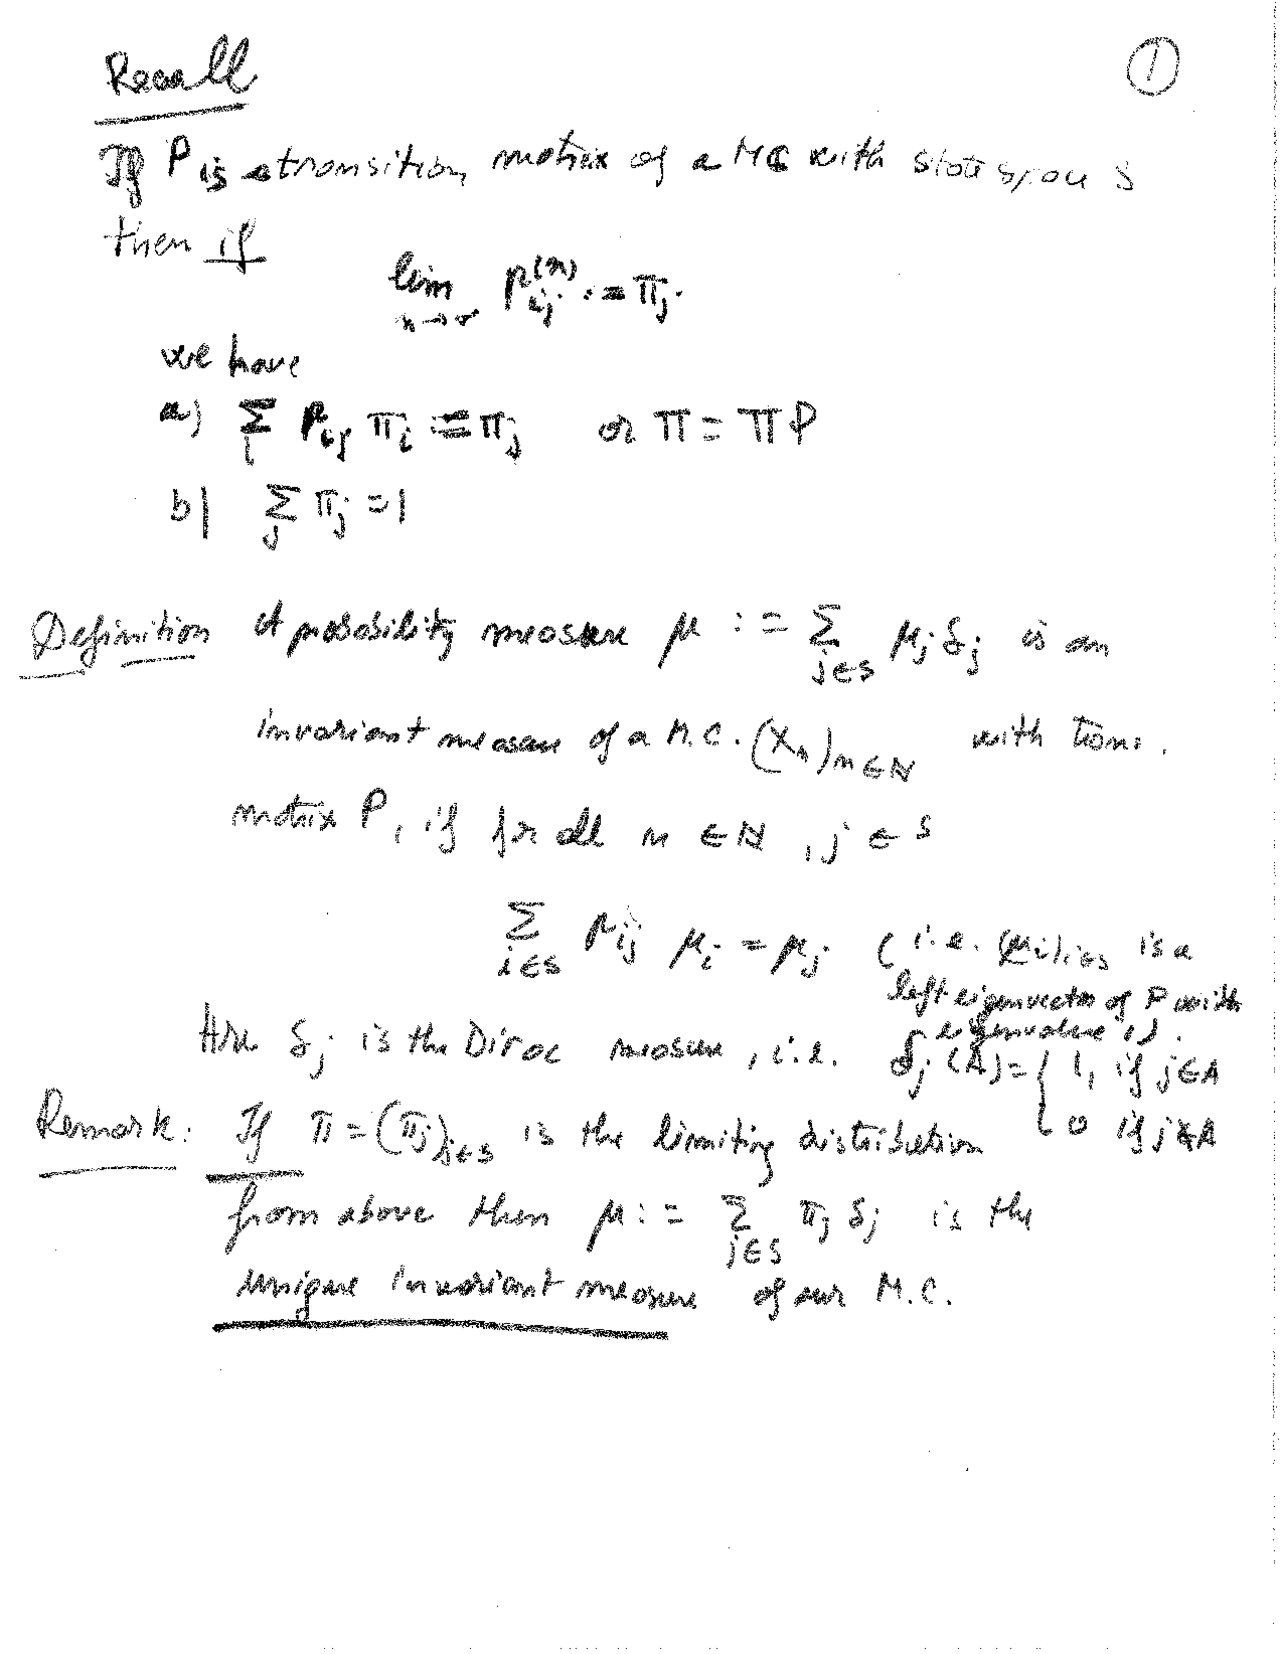 Recall
①
If P is a transition matrix of a MC with state space S
then if
lim n→∞ p_ij^(n) := π_j.
we have
a) Σ_i p_ij π_i = π_j or π = πP
b) Σ_j π_j = 1
Definition A probability measure μ := Σ_{j∈S} μ_j δ_j is an
invariant measure of a M.C. (X_n)_{n∈ℕ} with trans.
matrix P, if for all n ∈ ℕ, j ∈ S
Σ_{i∈S} p_ij μ_i = μ_j (i.e. (μ_i)_{i∈S} is a
left eigenvector of P with
eigenvalue 1).
Here δ_j is the Dirac measure, i.e. δ_j(A) = { 1, if j∈A
0 if j∉A
Remark: If π = (π_j)_{j∈S} is the limiting distribution
from above then μ := Σ_{j∈S} π_j δ_j is the
unique invariant measure of our M.C.